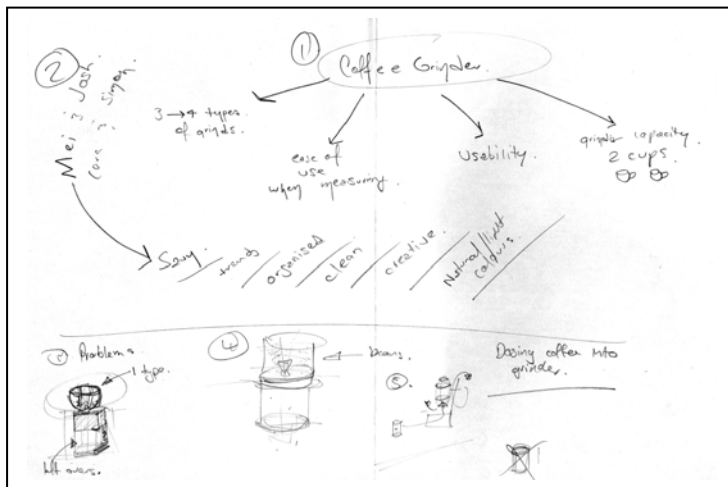 ①
Coffee Grinder.
3 → 4 types
of grinds.
ease of
use
when measuring.
Usability.
grinder capacity
2 cups.
②
Mei & Josh
& Simon
trends
organised
clean
creative
Natural/light
colours.
Problems
1 type.
left overs.
④
beans.
⑤.
Dosing coffee into
grinder.